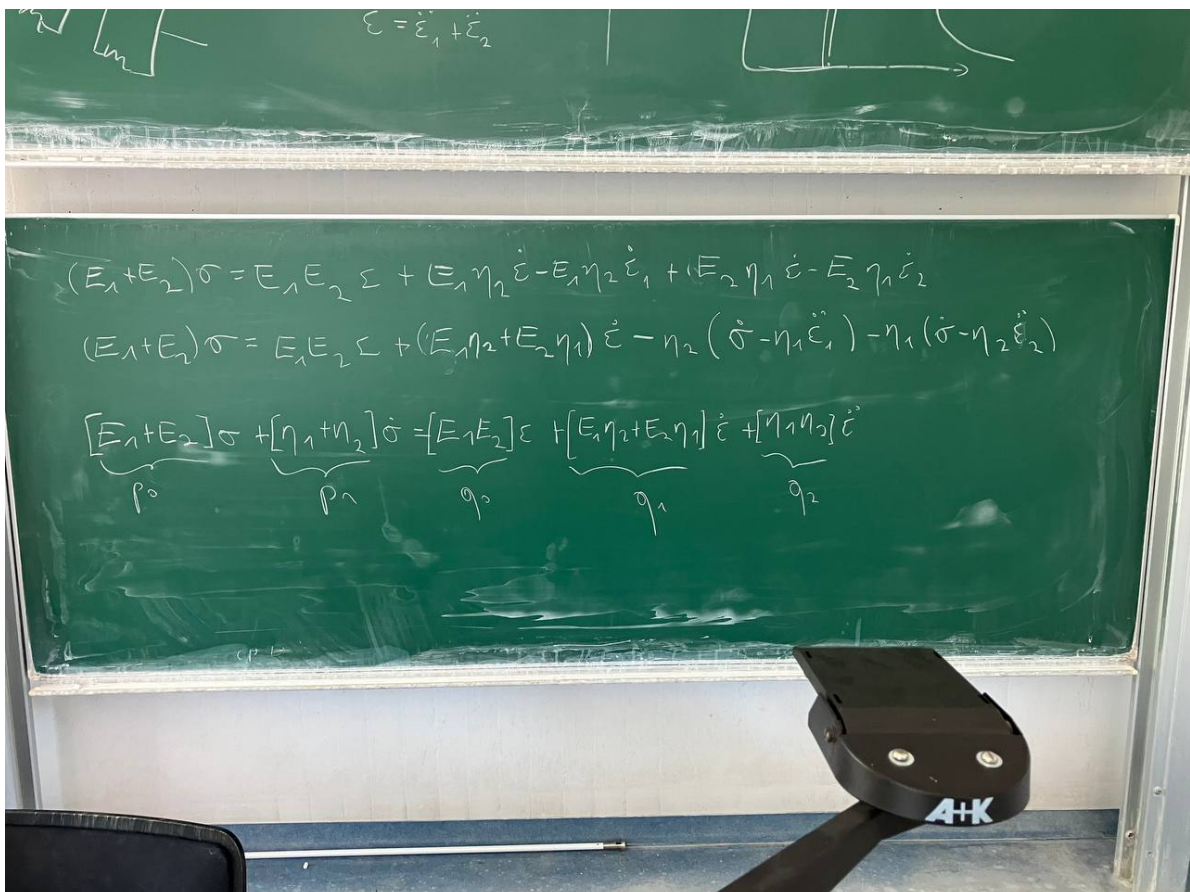 ε = ε̈₁ + ε̈₂
(E₁+E₂)σ = E₁E₂ ε + E₁η₂ ε̇ - E₁η₂ ε̇₁ + E₂η₁ ε̇ - E₂η₁ ε̇₂
(E₁+E₂)σ = E₁E₂ ε + (E₁η₂+E₂η₁) ε̇ - η₂ (σ̇-η₁ε̈₁) - η₁ (σ̇-η₂ε̈₂)
[E₁+E₂]σ + [η₁+η₂]σ̇ = [E₁E₂]ε + [E₁η₂+E₂η₁] ε̇ + [η₁η₂] ε̈
p₀ p₁ q₀ q₁ q₂
A+K